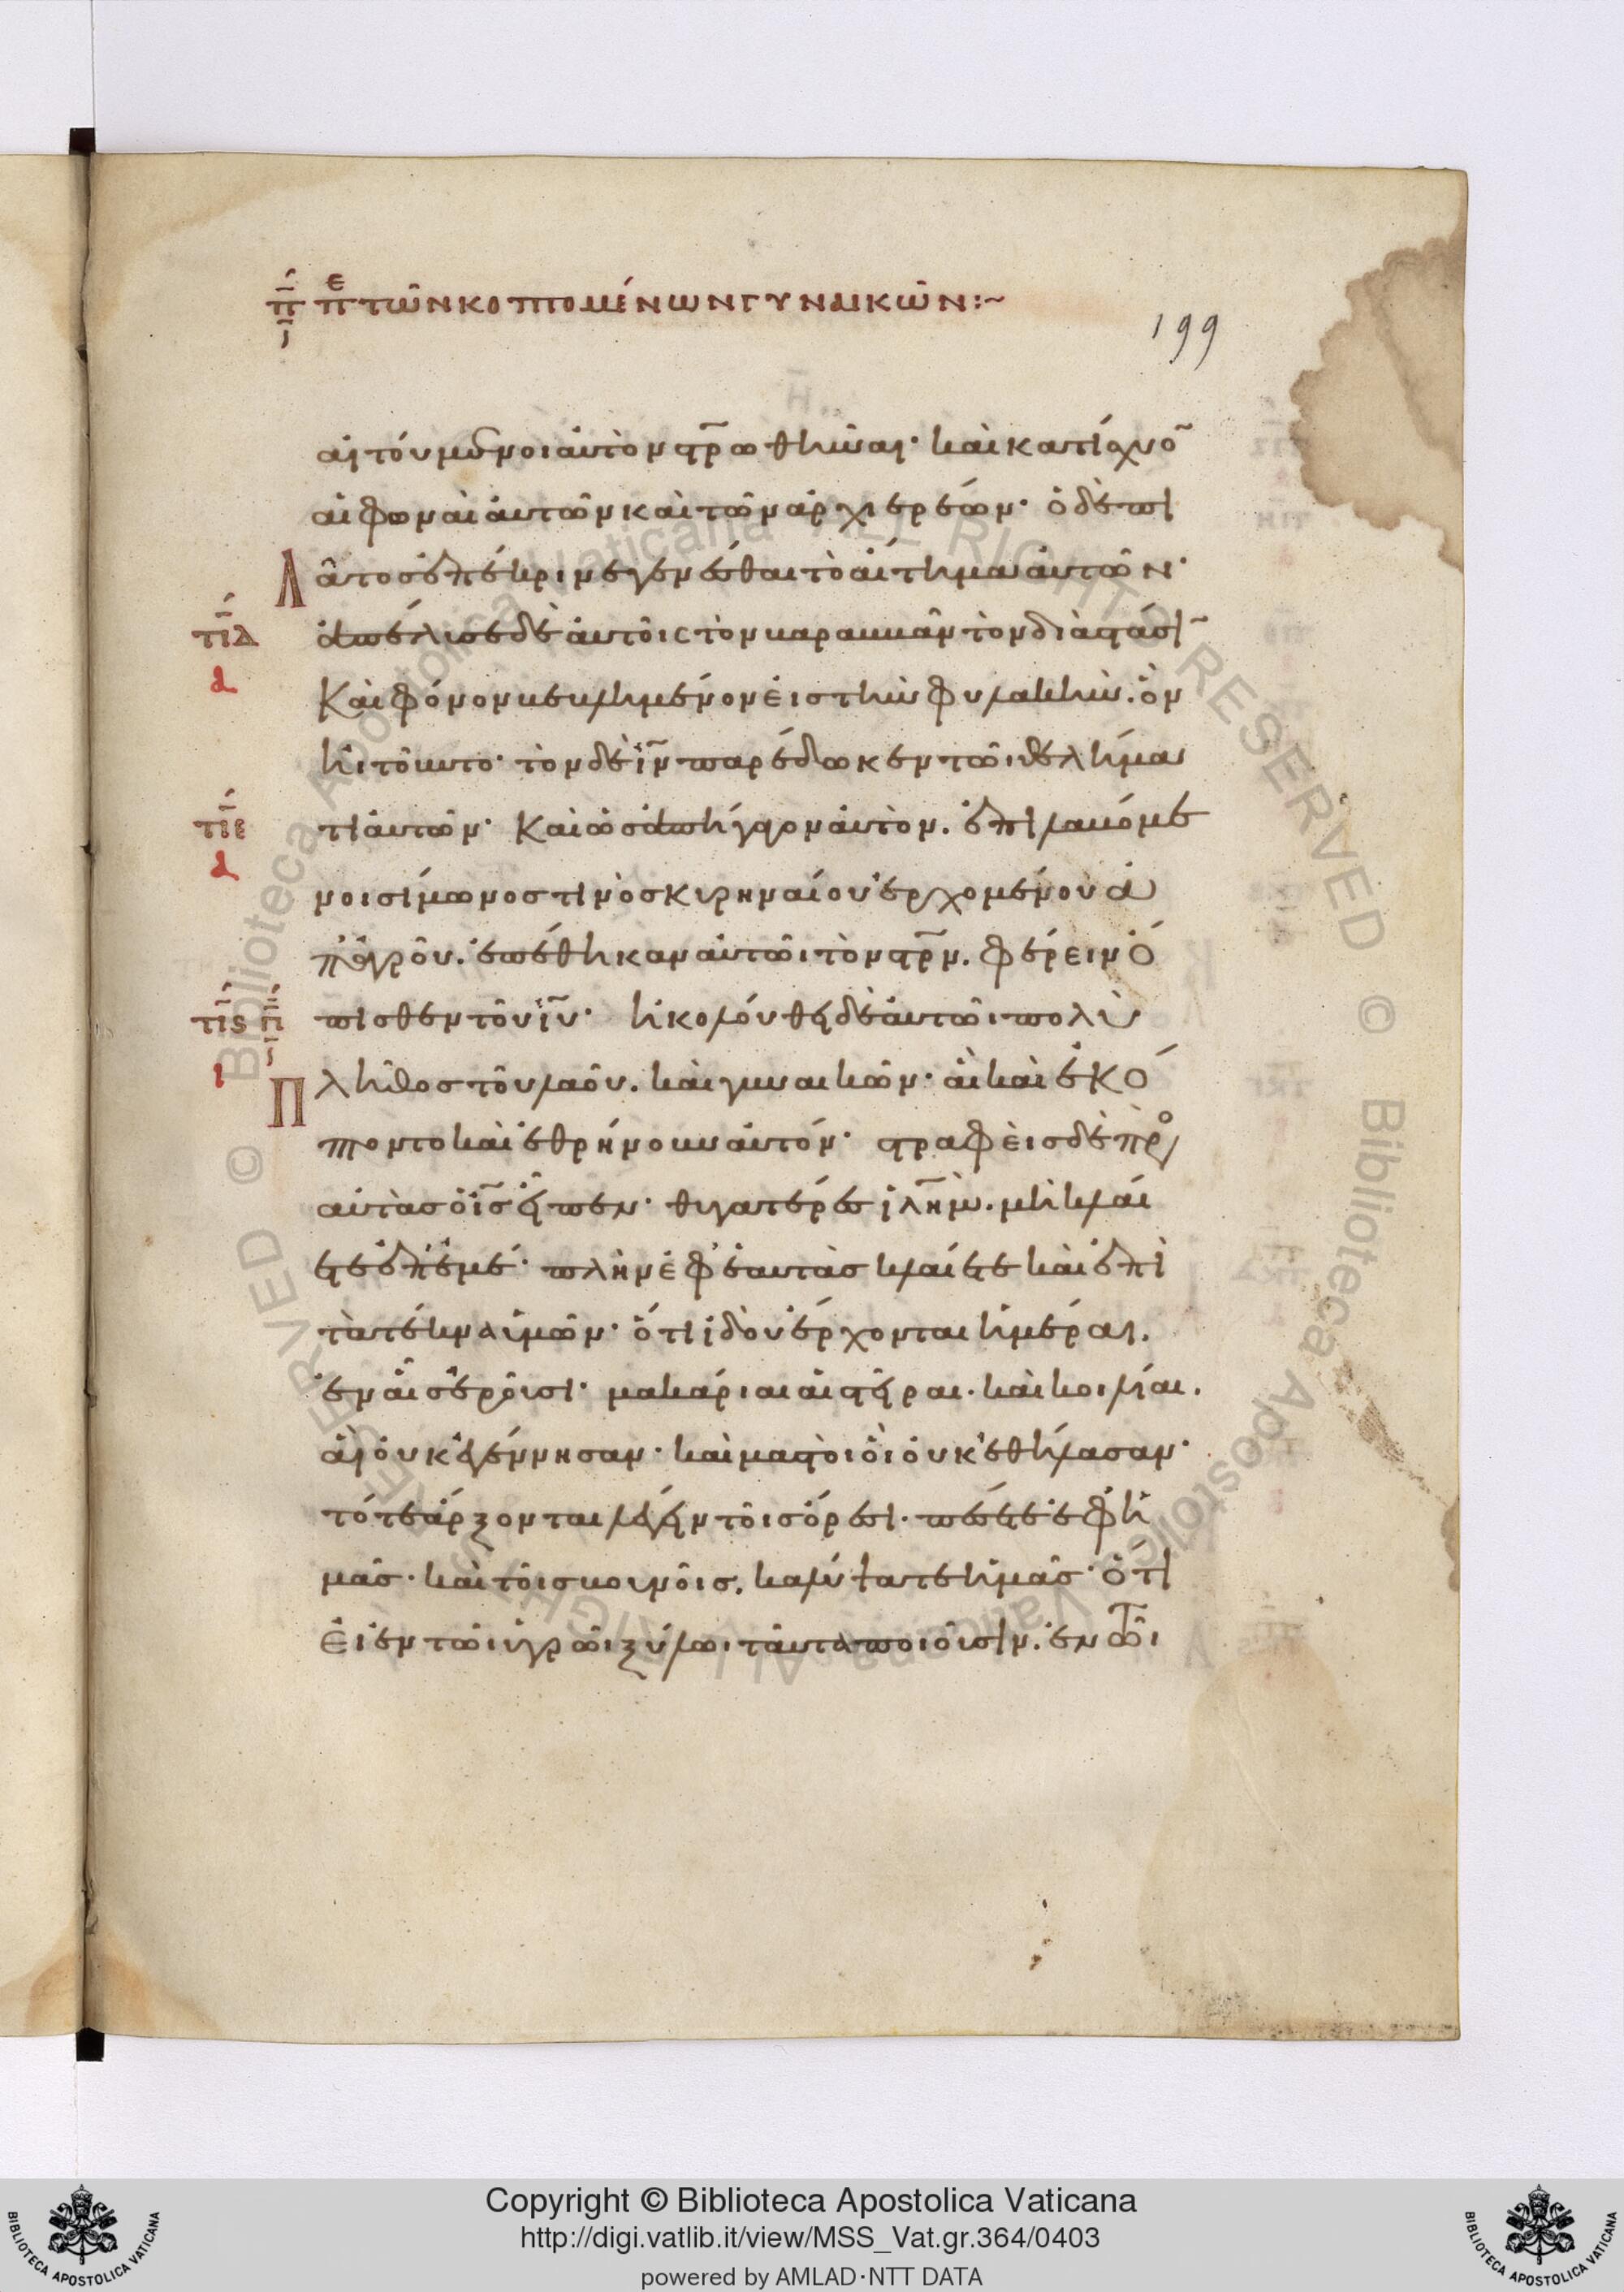 π̅ι πε τῶν κοπτομένων γυναικῶν:~
199
αἰτούμενοι αὐτὸν στ̅ρωθῆναι· καὶ κατίσχυο̅
αἱ φωναὶ αὐτῶν καὶ τῶν ἀρχιερέων· ὁ δὲ πι
λᾶτος ἐπέκρινε γενέσθαι τὸ αἴτημα αὐτῶν·
τιδ α ἀπέλυσε δὲ αὐτοῖς τὸν βαραββᾶν τὸν διὰ στάσι̅
Καὶ φόνον βεβλημένον εἰς τὴν φυλακὴν. ὃν
ἠιτοῦντο· τὸν δὲ ι̅ν παρέδωκεν τῶι θελήμα
τιε α τι αὐτῶν· Καὶ ὡς ἀπήγαγον αὐτὸν. ἐπιλαβόμε
νοι σίμωνος τινὸς κυρηναίου ἐρχομένου ἀ
π' ἀγροῦ. ἐπέθηκαν αὐτῶι τὸν στ̅ρν. φέρειν ὄ
τις ι πι πισθεν τοῦ ι̅υ· ἠκολούθει δὲ αὐτῶι πολὺ
Πλῆθος τοῦ λαοῦ. καὶ γυναικῶν· αἳ καὶ ἐκό
πτοντο καὶ ἐθρήνουν αὐτόν· στραφεὶς δὲ πρὸς
αὐτὰς ὁ ι̅ς εἶπεν· θυγατέρες ι̅λημ. μὴ κλαί
ετε ἐπ' ἐμέ· πλὴν ἐφ' ἑαυτὰς κλαίετε καὶ ἐπὶ
τὰ τέκνα ὑμῶν· ὅτι ἰδοὺ ἔρχονται ἡμέραι.
ἐν αἷς ἐροῦσι· μακάριαι αἱ στεῖραι. καὶ κοιλίαι.
αἳ οὐκ ἐγέννησαν· καὶ μαστοὶ οἳ οὐκ ἐθήλασαν·
τότε ἄρξονται λέγειν τοῖς ὄρεσι. πέσετε ἐφ' ἡ
μᾶς· καὶ τοῖς βουνοῖς. καλύψατε ἡμᾶς· ὅτι
Εἰ ἐν τῶι ὑγρῶι ξύλωι ταῦτα ποιοῦσιν. ἐν τῶι
Copyright © Biblioteca Apostolica Vaticana
http://digi.vatlib.it/view/MSS_Vat.gr.364/0403
powered by AMLAD·NTT DATA